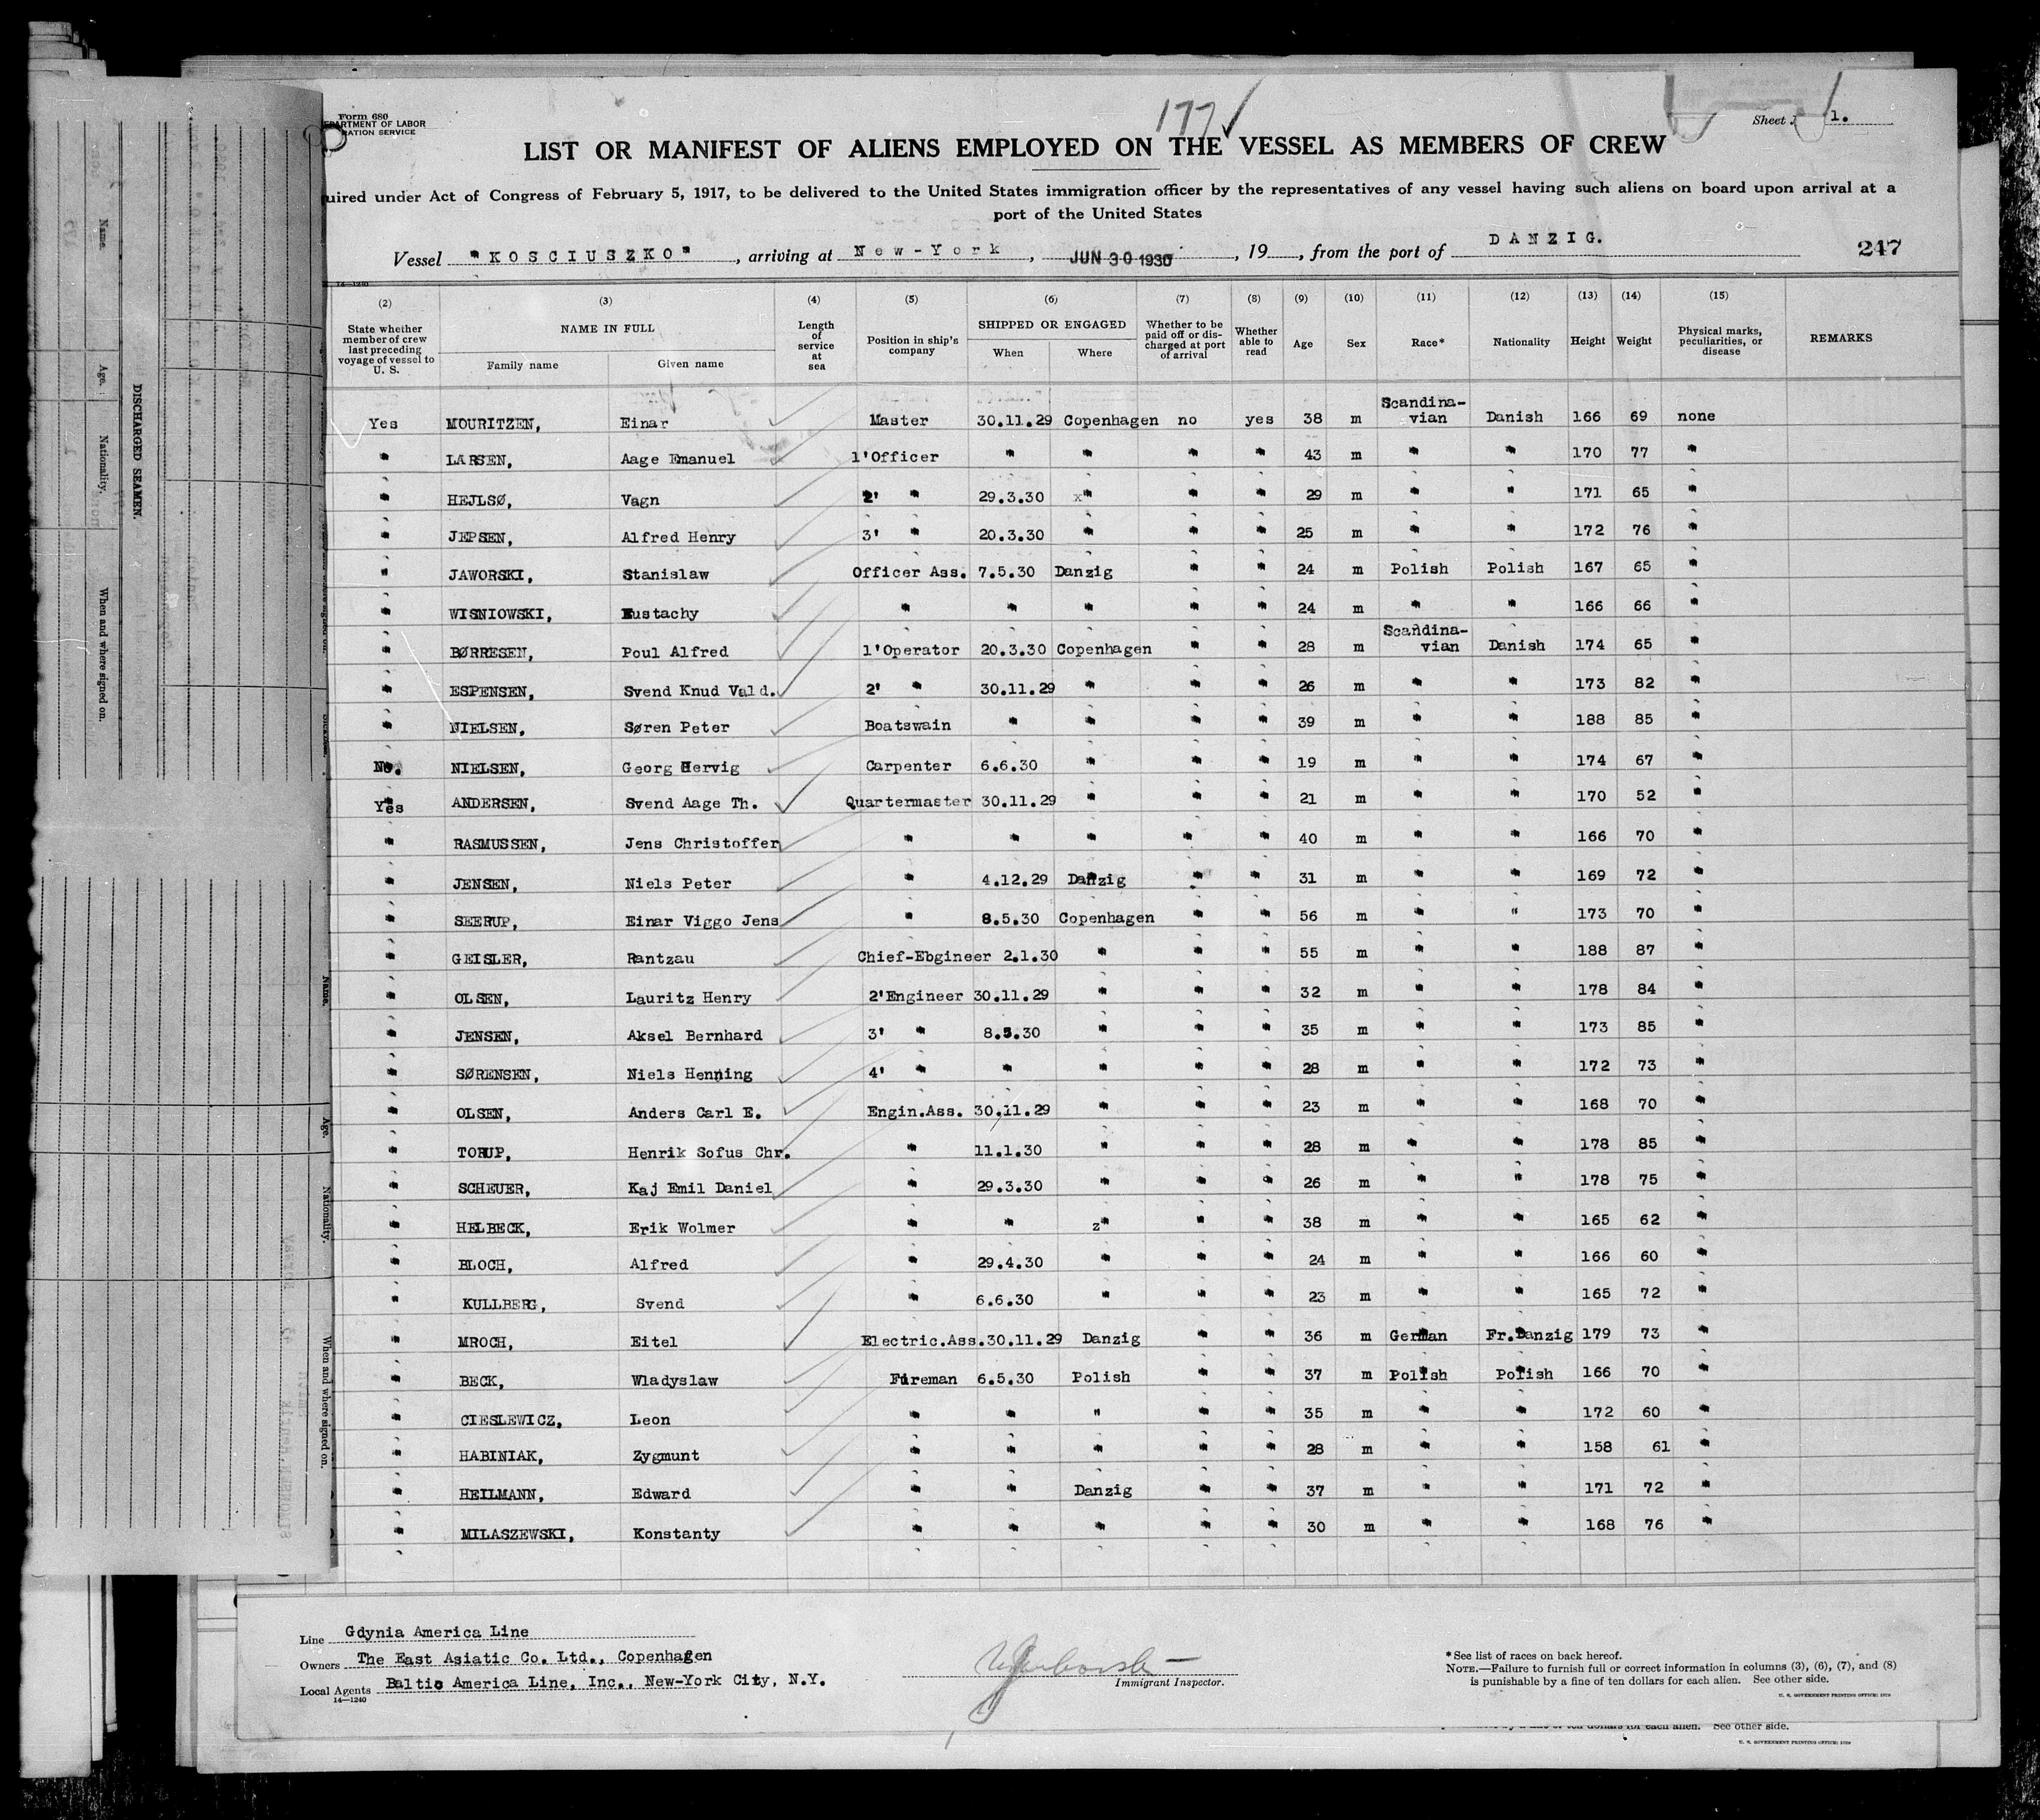 Form 680
DEPARTMENT OF LABOR
RATION SERVICE
177 ✓
Sheet 1.
LIST OR MANIFEST OF ALIENS EMPLOYED ON THE VESSEL AS MEMBERS OF CREW
uired under Act of Congress of February 5, 1917, to be delivered to the United States immigration officer by the representatives of any vessel having such aliens on board upon arrival at a
port of the United States
Vessel "KOSCIUSZKO", arriving at New-York, JUN 30 1930, 19, from the port of DANZIG. 247
14—1240
(2) (3) (4) (5) (6) (7) (8) (9) (10) (11) (12) (13) (14) (15)
State whether member of crew last preceding voyage of vessel to U. S. | NAME IN FULL | Family name | Given name | Length of service at sea | Position in ship's company | SHIPPED OR ENGAGED | When | Where | Whether to be paid off or discharged at port of arrival | Whether able to read | Age | Sex | Race* | Nationality | Height | Weight | Physical marks, peculiarities, or disease | REMARKS
Yes MOURITZEN, Einar Master 30.11.29 Copenhagen no yes 38 m Scandina-vian Danish 166 69 none
" LARSEN, Aage Emanuel 1'Officer " " " " 43 m " " 170 77 "
" HEJLSØ, Vagn 2' " 29.3.30 x" " " 29 m " " 171 65 "
" JEPSEN, Alfred Henry 3' " 20.3.30 " " " 25 m " " 172 76 "
" JAWORSKI, Stanislaw Officer Ass. 7.5.30 Danzig " " 24 m Polish Polish 167 65 "
" WISNIOWSKI, Eustachy " " " " " 24 m " " 166 66 "
" BØRRESEN, Poul Alfred 1'Operator 20.3.30 Copenhagen " " 28 m Scandina-vian Danish 174 65 "
" ESPENSEN, Svend Knud Vald. 2' " 30.11.29 " " " 26 m " " 173 82 "
" NIELSEN, Søren Peter Boatswain " " " " 39 m " " 188 85 "
No. NIELSEN, Georg Hervig Carpenter 6.6.30 " " " 19 m " " 174 67 "
Yes ANDERSEN, Svend Aage Th. Quartermaster 30.11.29 " " " 21 m " " 170 52 "
" RASMUSSEN, Jens Christoffer " " " " " 40 m " " 166 70 "
" JENSEN, Niels Peter " 4.12.29 Danzig " " 31 m " " 169 72 "
" SEERUP, Einar Viggo Jens " 8.5.30 Copenhagen " " 56 m " " 173 70 "
" GEISLER, Rantzau Chief-Ebgineer 2.1.30 " " " 55 m " " 188 87 "
" OLSEN, Lauritz Henry 2'Engineer 30.11.29 " " " 32 m " " 178 84 "
" JENSEN, Aksel Bernhard 3' " 8.5.30 " " " 35 m " " 173 85 "
" SØRENSEN, Niels Henning 4' " " " " " 28 m " " 172 73 "
" OLSEN, Anders Carl E. Engin.Ass. 30.11.29 " " " 23 m " " 168 70 "
" TORUP, Henrik Sofus Chr. " 11.1.30 " " " 28 m " " 178 85 "
" SCHEUER, Kaj Emil Daniel " 29.3.30 " " " 26 m " " 178 75 "
" HELBECK, Erik Wolmer " " z" " " 38 m " " 165 62 "
" BLOCH, Alfred " 29.4.30 " " " 24 m " " 166 60 "
" KULLBERG, Svend " 6.6.30 " " " 23 m " " 165 72 "
" MROCH, Eitel Electric.Ass. 30.11.29 Danzig " " 36 m German Fr.Danzig 179 73 "
" BECK, Wladyslaw Fireman 6.5.30 Polish " " 37 m Polish Polish 166 70 "
" CIESLEWICZ, Leon " " " " " 35 m " " 172 60 "
" HABINIAK, Zygmunt " " " " " 28 m " " 158 61 "
" HEILMANN, Edward " " Danzig " " 37 m " " 171 72 "
" MILASZEWSKI, Konstanty " " " " " 30 m " " 168 76 "
Line Gdynia America Line
Owners The East Asiatic Co. Ltd., Copenhagen
Local Agents Baltic America Line, Inc., New-York City, N.Y.
14—1240
Immigrant Inspector.
*See list of races on back hereof.
NOTE.—Failure to furnish full or correct information in columns (3), (6), (7), and (8)
is punishable by a fine of ten dollars for each alien. See other side.
U. S. GOVERNMENT PRINTING OFFICE: 1929
for each alien. See other side.
U. S. GOVERNMENT PRINTING OFFICE: 1929
DISCHARGED SEAMEN.
Name. Age. Nationality. When and where signed on.
Name. Age. Nationality. When and where signed on.